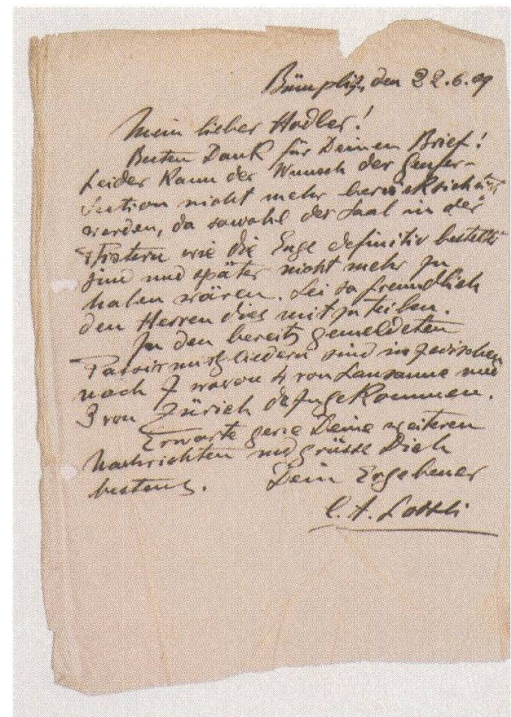 Bümpliz, den 22.6.09
Mein lieber Hodler!
Besten Dank für Deinen Brief!
Leider kann der Wunsch der Genfer-
Section nicht mehr berücksichtigt
werden, da sowohl der Saal in der
wie die Enge definitiv bestellt
sind und später nicht mehr zu
haben wären. Sei so freundlich
den Herren dies mitzuteilen.
Zu den bereits gemeldeten
Passivmitgliedern sind inzwischen
noch 7 wovon 4 von Lausanne und
3 von Zürich dazugekommen.
Erwarte gerne Deine weiteren
Nachrichten und grüsse Dich
bestens. Dein Ergebener
C. A. Loosli